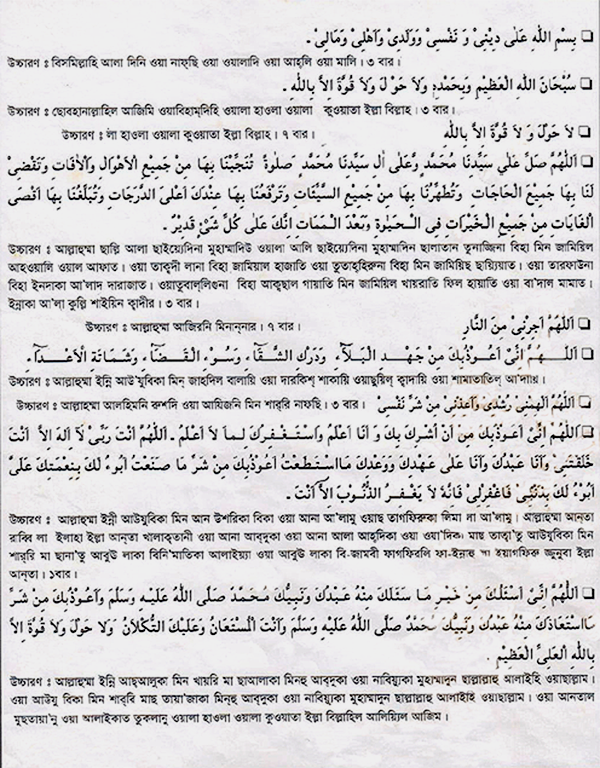 ❑ بِسْمِ اللّٰهِ عَلٰى دِيْنِىْ وَ نَفْسِىْ وَوَلَدِىْ وَاَهْلِىْ وَمَالِىْ۔
উচ্চারণ ঃ বিসমিল্লাহি আলা দিনি ওয়া নাফ্ছি ওয়া ওয়ালাদি ওয়া আহ্‌লি ওয়া মালি। ৩ বার।
❑ سُبْحَانَ اللّٰهِ الْعَظِيْمِ وَبِحَمْدِهٖ وَلَا حَوْلَ وَلَا قُوَّةَ اِلَّا بِاللّٰهِ۔
উচ্চারণ ঃ ছোবহানাল্লাহিল আজিমি ওয়াবিহাম্‌দিহি ওয়ালা হাওলা ওয়ালা কুওয়াতা ইল্লা বিল্লাহ। ৩ বার।
❑ لَا حَوْلَ وَ لَا قُوَّةَ اِلَّا بِاللّٰهِ উচ্চারণ ঃ লা হাওলা ওয়ালা কুওয়াতা ইল্লা বিল্লাহ। ৭ বার।
❑ اَللّٰهُمَّ صَلِّ عَلٰي سَيِّدِنَا مُحَمَّدٍ وَّعَلٰى اٰلِ سَيِّدِنَا مُحَمَّدٍ صَلٰوةً تُنَجِّيْنَا بِهَا مِنْ جَمِيْعِ الْاَهْوَالِ وَالْاٰفَاتِ وَتَقْضِىْ
لَنَا بِهَا جَمِيْعَ الْحَاجَاتِ وَتُطَهِّرُنَا بِهَا مِنْ جَمِيْعِ السَّيِّئَاتِ وَتَرْفَعُنَا بِهَا عِنْدَكَ اَعْلَى الدَّرَجَاتِ وَتُبَلِّغُنَا بِهَا اَقْصَى
الْغَايَاتِ مِنْ جَمِيْعِ الْخَيْرَاتِ فِى الْحَيٰوةِ وَبَعْدَ الْمَمَاتِ اِنَّكَ عَلٰى كُلِّ شَىْءٍ قَدِيْرٌ۔
উচ্চারণ ঃ আল্লাহুম্মা ছাল্লি আলা ছাইয়্যেদিনা মুহাম্মাদিউ ওয়ালা আলি ছাইয়্যেদিনা মুহাম্মাদিন ছালাতান তুনাজ্জিনা বিহা মিন জামিয়িল
আহওয়ালি ওয়াল আফাত। ওয়া তাক্‌দী লানা বিহা জামিয়াল হাজাতি ওয়া তুতাহ্‌হিরুনা বিহা মিন জামিয়িছ ছায়্যিয়াত। ওয়া তারফাউনা
বিহা ইনদাকা আ'লাদ দারাজাত। ওয়াতুবাল্‌লিগুনা বিহা আক্‌ছাল গায়াতি মিন জামিয়িল খায়রাতি ফিল হায়াতি ওয়া বা'দাল মামাত।
ইন্নাকা আ'লা কুল্লি শাইয়িন ক্বাদীর। ৩ বার।
❑ اَللّٰهُمَّ اَجِرْنِىْ مِنَ النَّارِ উচ্চারণ ঃ আল্লাহুম্মা আজিরনি মিনান্নার। ৭ বার।
❑ اَللّٰهُمَّ اِنِّىْ اَعُوْذُبِكَ مِنْ جَهْدِ الْبَلَآءِ وَدَرْكِ الشَّقَآءِ وَسُوْءِ الْقَضَآءِ وَشَمَاتَةِ الْاَعْدَآءِ
উচ্চারণ ঃ আল্লাহুম্মা ইন্নি আউ'যুবিকা মিন্ জাহদিল বালায়ি ওয়া দারকিশ্ শাকায়ি ওয়াছুয়িল্ ক্বাদায়ি ওয়া শামাতাতিল্ আ'দায়ি।
❑ اَللّٰهُمَّ اَلْهِمْنِىْ رُشْدِىْ وَاَعِذْنِىْ مِنْ شَرِّ نَفْسِىْ উচ্চারণ ঃ আল্লাহুম্মা আলহিমনি রুশদি ওয়া আয়িজনি মিন শার্‌রি নাফছি। ৩ বার।
❑ اَللّٰهُمَّ اِنِّىْ اَعُوْذُبِكَ مِنْ اَنْ اُشْرِكَ بِكَ وَ اَنَا اَعْلَمُ وَاَسْتَغْفِرُكَ لِمَا لَا اَعْلَمُ۔ اَللّٰهُمَّ اَنْتَ رَبِّىْ لَا اِلٰهَ اِلَّا اَنْتَ
خَلَقْتَنِىْ وَاَنَا عَبْدُكَ وَاَنَا عَلٰى عَهْدِكَ وَوَعْدِكَ مَااسْتَطَعْتُ اَعُوْذُبِكَ مِنْ شَرِّ مَا صَنَعْتُ اَبُوْءُ لَكَ بِنِعْمَتِكَ عَلَىَّ
اَبُوْءُ لَكَ بِذَنْبِىْ فَاغْفِرْلِىْ فَاِنَّهٗ لَا يَغْفِرُ الذُّنُوْبَ اِلَّا اَنْتَ۔
উচ্চারণ ঃ আল্লাহুম্মা ইন্নী আউযুবিকা মিন আন উশরিকা বিকা ওয়া আনা আ'লামু ওয়াছ তাগফিরুকা লিমা লা আ'লামু। আল্লাহুম্মা আন্‌তা
রাব্বি লা ইলাহা ইল্লা আন্‌তা খালাক্‌তানী ওয়া আনা আব্‌দুকা ওয়া আনা আলা আহ্‌দিকা ওয়া ওয়া'দিকা মাছ তাত্বা'তু আউযুবিকা মিন
শার্‌রি মা ছানা'তু আবুউ লাকা বিনি'মাতিকা আলাইয়্যা ওয়া আবুউ লাকা বি-জামবী ফাগফিরলি ফা-ইন্নাহু লা ইয়াগফিরু জ্জুনুবা ইল্লা
আন্‌তা। ১বার।
❑ اَللّٰهُمَّ اِنِّىْ اَسْئَلُكَ مِنْ خَيْرِ مَا سَئَلَكَ مِنْهُ عَبْدُكَ وَنَبِيُّكَ مُحَمَّدٌ صَلَّى اللّٰهُ عَلَيْهِ وَسَلَّمَ وَاَعُوْذُبِكَ مِنْ شَرِّ
مَااسْتَعَاذَكَ مِنْهُ عَبْدُكَ وَنَبِيُّكَ مُحَمَّدٌ صَلَّى اللّٰهُ عَلَيْهِ وَسَلَّمَ وَاَنْتَ الْمُسْتَعَانُ وَعَلَيْكَ التُّكْلَانُ وَلَا حَوْلَ وَلَا قُوَّةَ اِلَّا
بِاللّٰهِ الْعَلِىِّ الْعَظِيْمِ۔
উচ্চারণ ঃ আল্লাহুম্মা ইন্নি আছ্‌আলুকা মিন খায়রি মা ছাআলাকা মিনহু আব্‌দুকা ওয়া নাবিয়্যুকা মুহাম্মাদুন ছাল্লাল্লাহু আলাইহি ওয়াছাল্লাম।
ওয়া আউযু বিকা মিন শার্‌রি মাছ তায়া'জাকা মিন্‌হু আব্‌দুকা ওয়া নাবিয়্যুকা মুহাম্মাদুন ছাল্লাল্লাহু আলাইহি ওয়াছাল্লাম। ওয়া আনতাল
মুছতায়া'নু ওয়া আলাইকাত তুকলানু ওয়ালা হাওলা ওয়ালা কুওয়াতা ইল্লা বিল্লাহিল আলিয়্যিল আজিম।